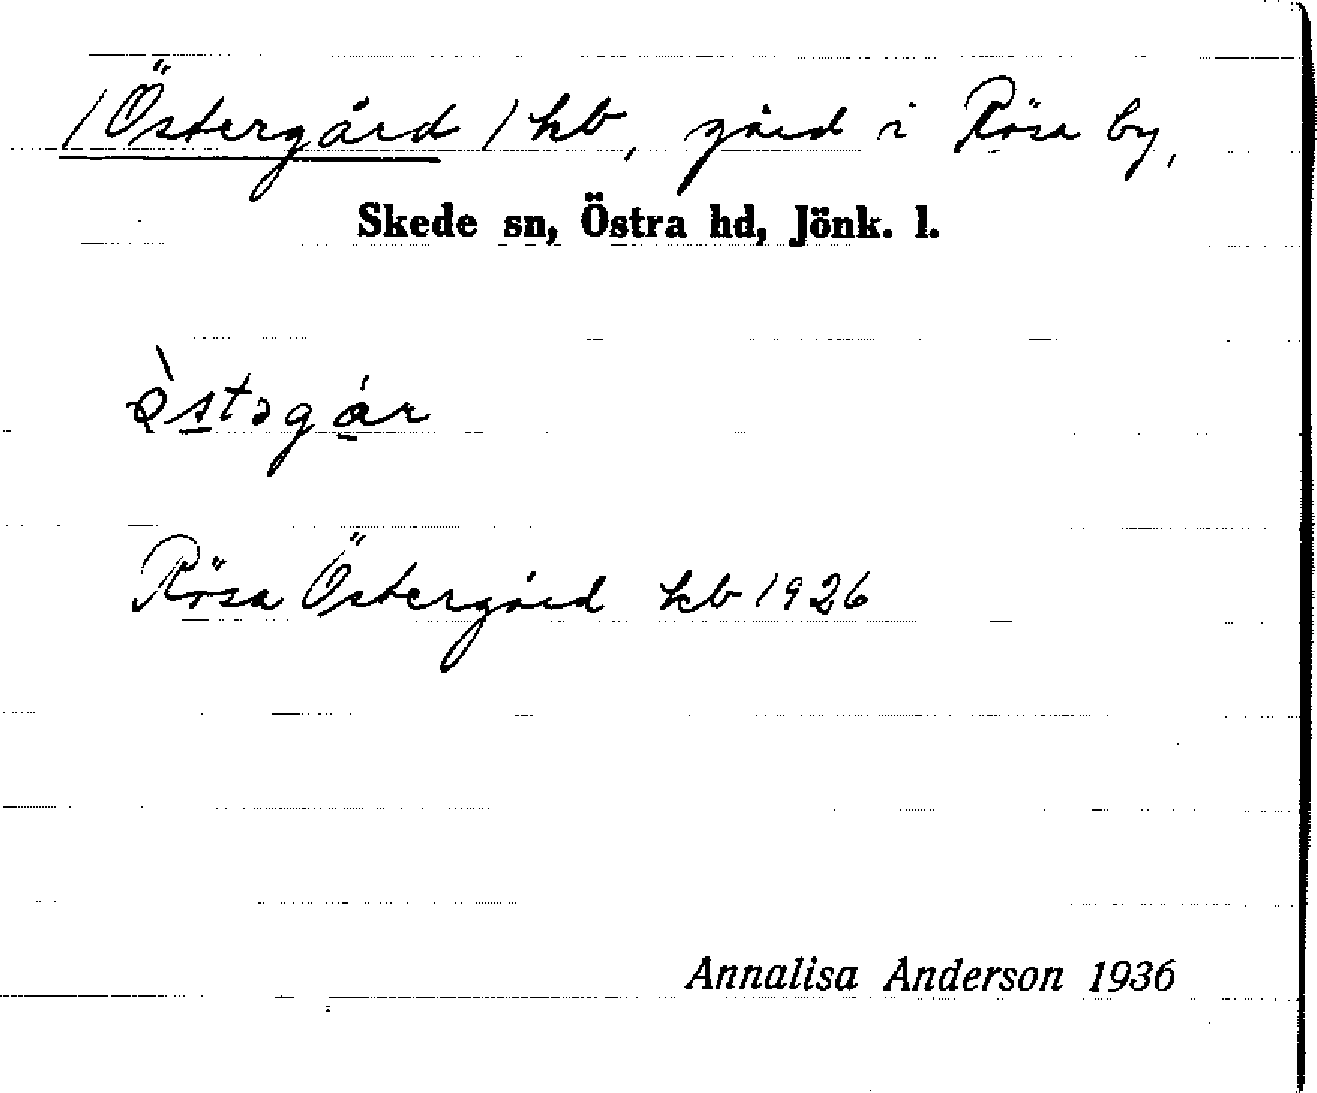 /Östergård/ kb, gård i Rösa by,
Skede sn, Östra hd, Jönk. l.
Rösa Östergård kb 1926
Annalisa Anderson 1936